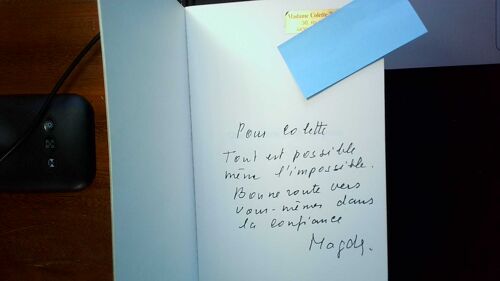 Madame Colette
Pour Colette
Tout est possible
même l'impossible.
Bonne route vers
vous-mêmes dans
la confiance
Magda.